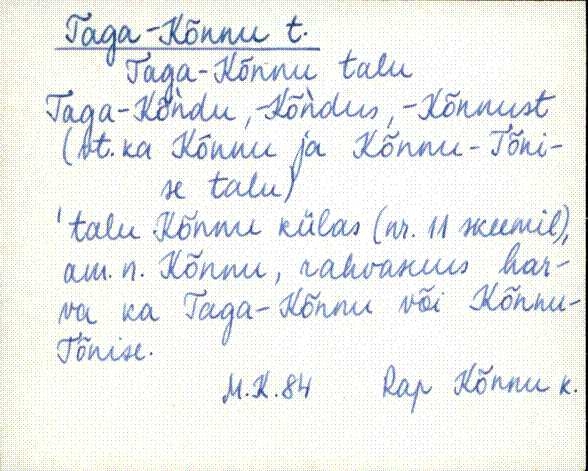 Taga-Kõnnu t.
Taga-Kõnnu talu
Taga-Kõǹdu, -Kõǹdus, -Kõnnust
(vt. ka Kõnnu ja Kõnnu-Tõni-
se talu)
'talu Kõnnu külas (nr. 11 skeemil),
am. n. Kõnnu, rahvasuus har-
va ka Taga-Kõnnu või Kõnnu-
Tõnise.
M.K. 84 Rap Kõnnu k.